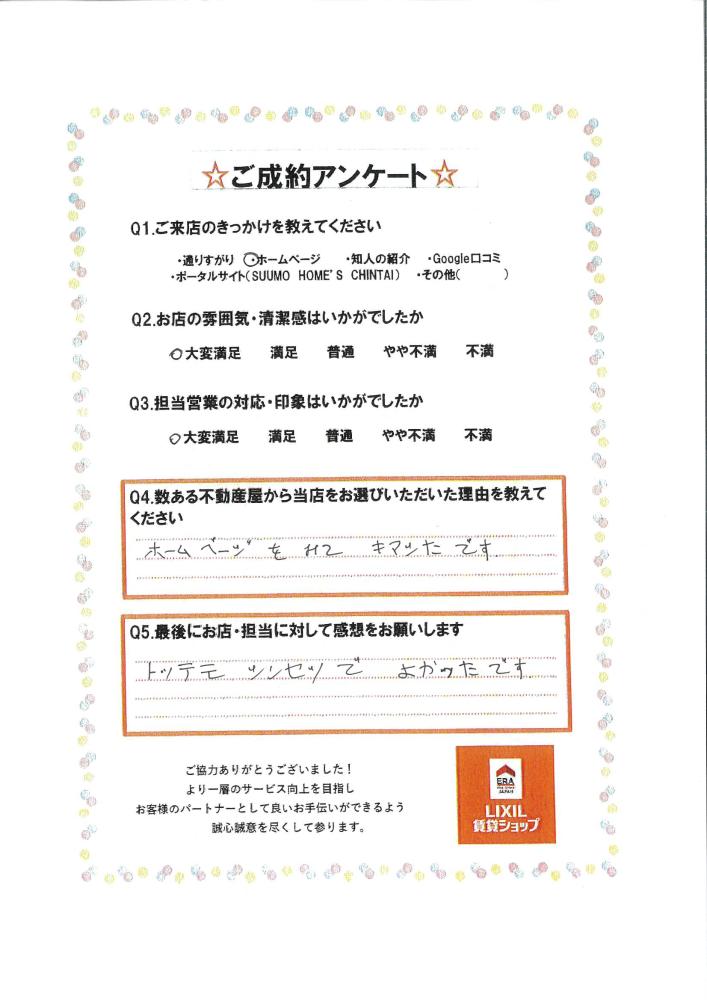 ☆ご成約アンケート☆
Q1.ご来店のきっかけを教えてください
・通りすがり ・ホームページ ・知人の紹介 ・Google口コミ
・ポータルサイト(SUUMO HOME'S CHINTAI) ・その他( )
Q2.お店の雰囲気・清潔感はいかがでしたか
大変満足 満足 普通 やや不満 不満
Q3.担当営業の対応・印象はいかがでしたか
大変満足 満足 普通 やや不満 不満
Q4.数ある不動産屋から当店をお選びいただいた理由を教えて
ください
ホームページ を みて キマッた です
Q5.最後にお店・担当に対して感想をお願いします
トッテモ シンセツ で よかったです
ご協力ありがとうございました！
より一層のサービス向上を目指し
お客様のパートナーとして良いお手伝いができるよう
誠心誠意を尽くして参ります。
ERA
JAPAN
LIXIL
賃貸ショップ